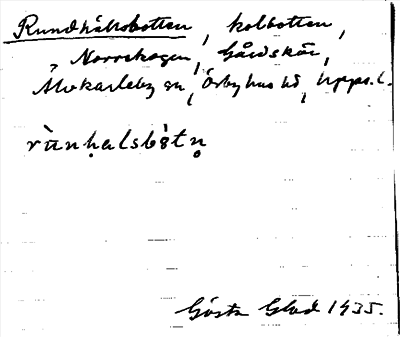 Rundhällsbotten, kolbotten,
Norrskogen, Gårdskär,
Älvkarleby sn, Örbyhus hd, Upps. l.
rùnhalsbòtn̥
Gösta Glad 1935.